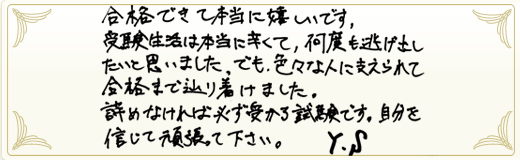 合格できて本当に嬉しいです。
受験生活は本当に辛くて、何度も逃げ出し
たいと思いました。でも、色々な人に支えられて
合格まで辿り着けました。
諦めなければ必ず受かる試験です。自分を
信じて頑張って下さい。 Y.S